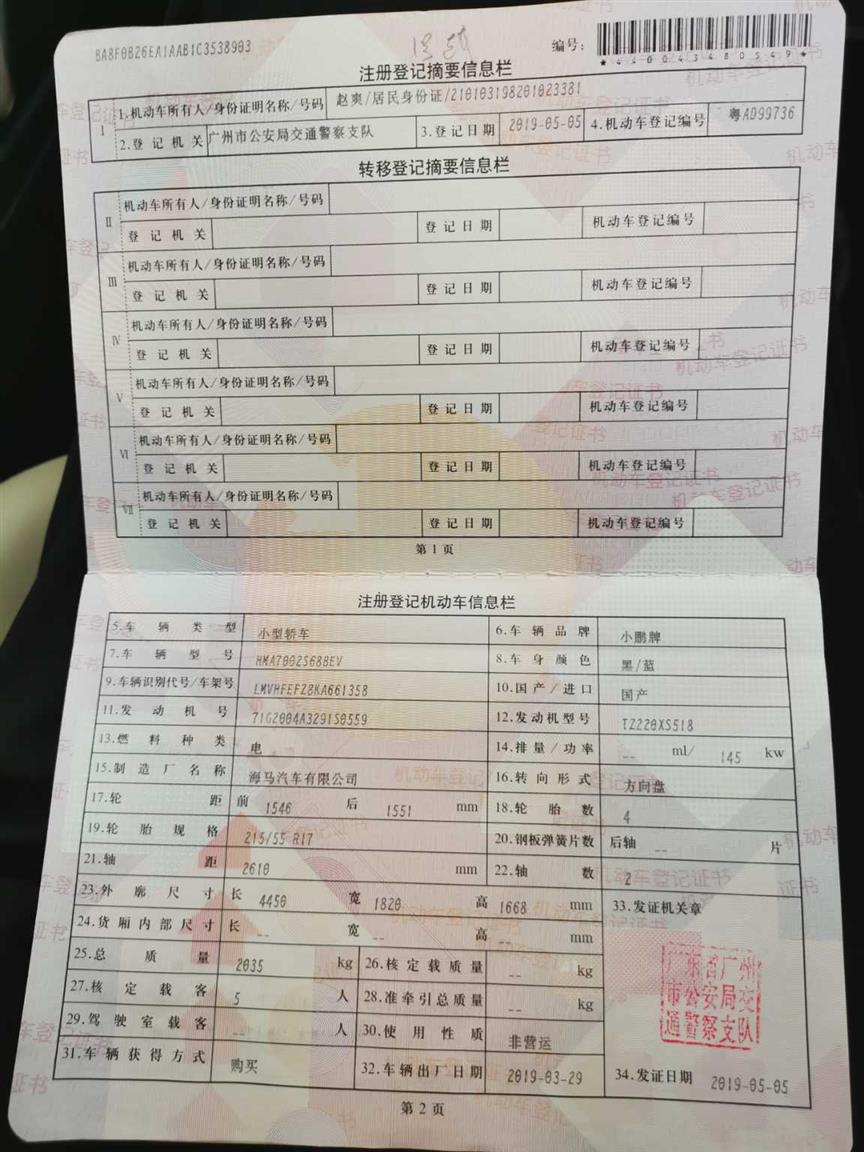 BA8F0B26EA1AAB1C3538903
编号:
*440043480549*
注册登记摘要信息栏
I
1.机动车所有人/身份证明名称/号码 赵爽/居民身份证/210103198201023381
2.登记机关 广州市公安局交通警察支队 3.登记日期 2019-05-05 4.机动车登记编号 粤AD99736
转移登记摘要信息栏
II
机动车所有人/身份证明名称/号码
登记机关 登记日期 机动车登记编号
III
机动车所有人/身份证明名称/号码
登记机关 登记日期 机动车登记编号
IV
机动车所有人/身份证明名称/号码
登记机关 登记日期 机动车登记编号
V
机动车所有人/身份证明名称/号码
登记机关 登记日期 机动车登记编号
VI
机动车所有人/身份证明名称/号码
登记机关 登记日期 机动车登记编号
VII
机动车所有人/身份证明名称/号码
登记机关 登记日期 机动车登记编号
第1页
注册登记机动车信息栏
5.车辆类型 小型轿车 6.车辆品牌 小鹏牌
7.车辆型号 HMA7002S68BEV 8.车身颜色 黑/蓝
9.车辆识别代号/车架号 LMVHFEFZ8KA661358 10.国产/进口 国产
11.发动机号 71G2004A3291S0559 12.发动机型号 TZ220XS518
13.燃料种类 电 14.排量/功率 -- ml/ 145 kw
15.制造厂名称 海马汽车有限公司 16.转向形式 方向盘
17.轮距 前 1546 后 1551 mm 18.轮胎数 4
19.轮胎规格 215/55 R17 20.钢板弹簧片数 后轴 -- 片
21.轴距 2610 mm 22.轴数 2
23.外廓尺寸 长 4450 宽 1820 高 1668 mm 33.发证机关章
24.货厢内部尺寸 长 -- 宽 -- 高 -- mm
25.总质量 2035 kg 26.核定载质量 -- kg
27.核定载客 5 人 28.准牵引总质量 -- kg
29.驾驶室载客 -- 人 30.使用性质 非营运
广东省广州
市公安局交
通警察支队
31.车辆获得方式 购买 32.车辆出厂日期 2019-03-29 34.发证日期 2019-05-05
第2页